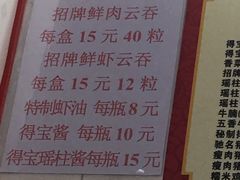 招牌鲜肉云吞
每盒15元40粒
招牌鲜虾云吞
每盒15元12粒
特制虾油 每瓶8元
得宝酱 每瓶10元
得宝瑶柱酱每瓶15元
瑶柱
香菜
瑶柱
瑶柱
牛腩
五香牛
秘制
驰名
瘦肉
瘦肉
糯米